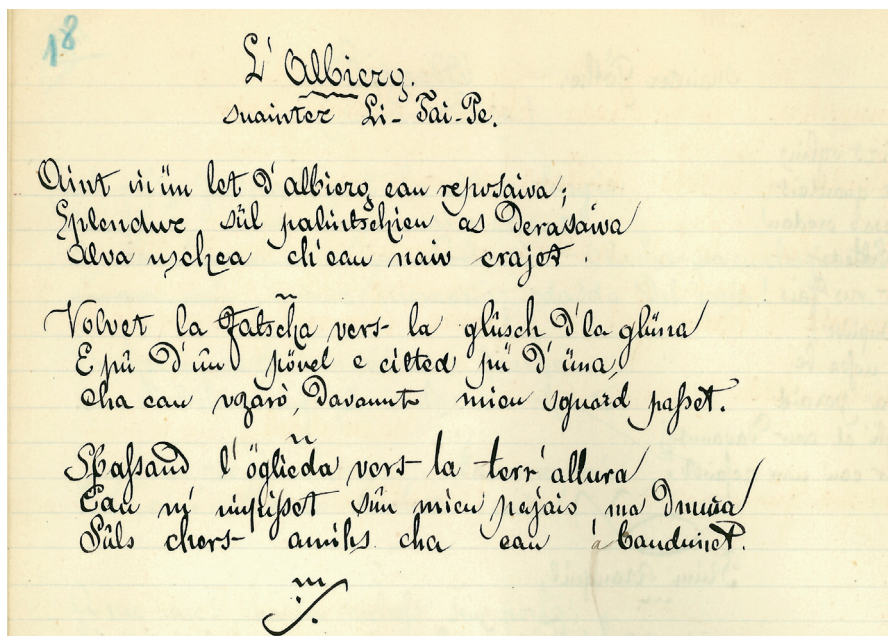 18
L' Albierg.
suainter Li-Tai-Pe.
Aint in ün let d'albierg eau reposaiva,
Splendur sül palintschieu as derasaiva
Alva uschea ch'eau naiv crajet.
Volvet la fatscha vers la glüsch d'la glüna
E pü d'ün pövel e citted pü d'üna
cha eau vzarò, davaunt mieu sguard passet.
Spassand l'öglieda vers la terr'allura
Eau m'impisset sün mieu pajais ma
Süls chers amihs cha eau abandunet.